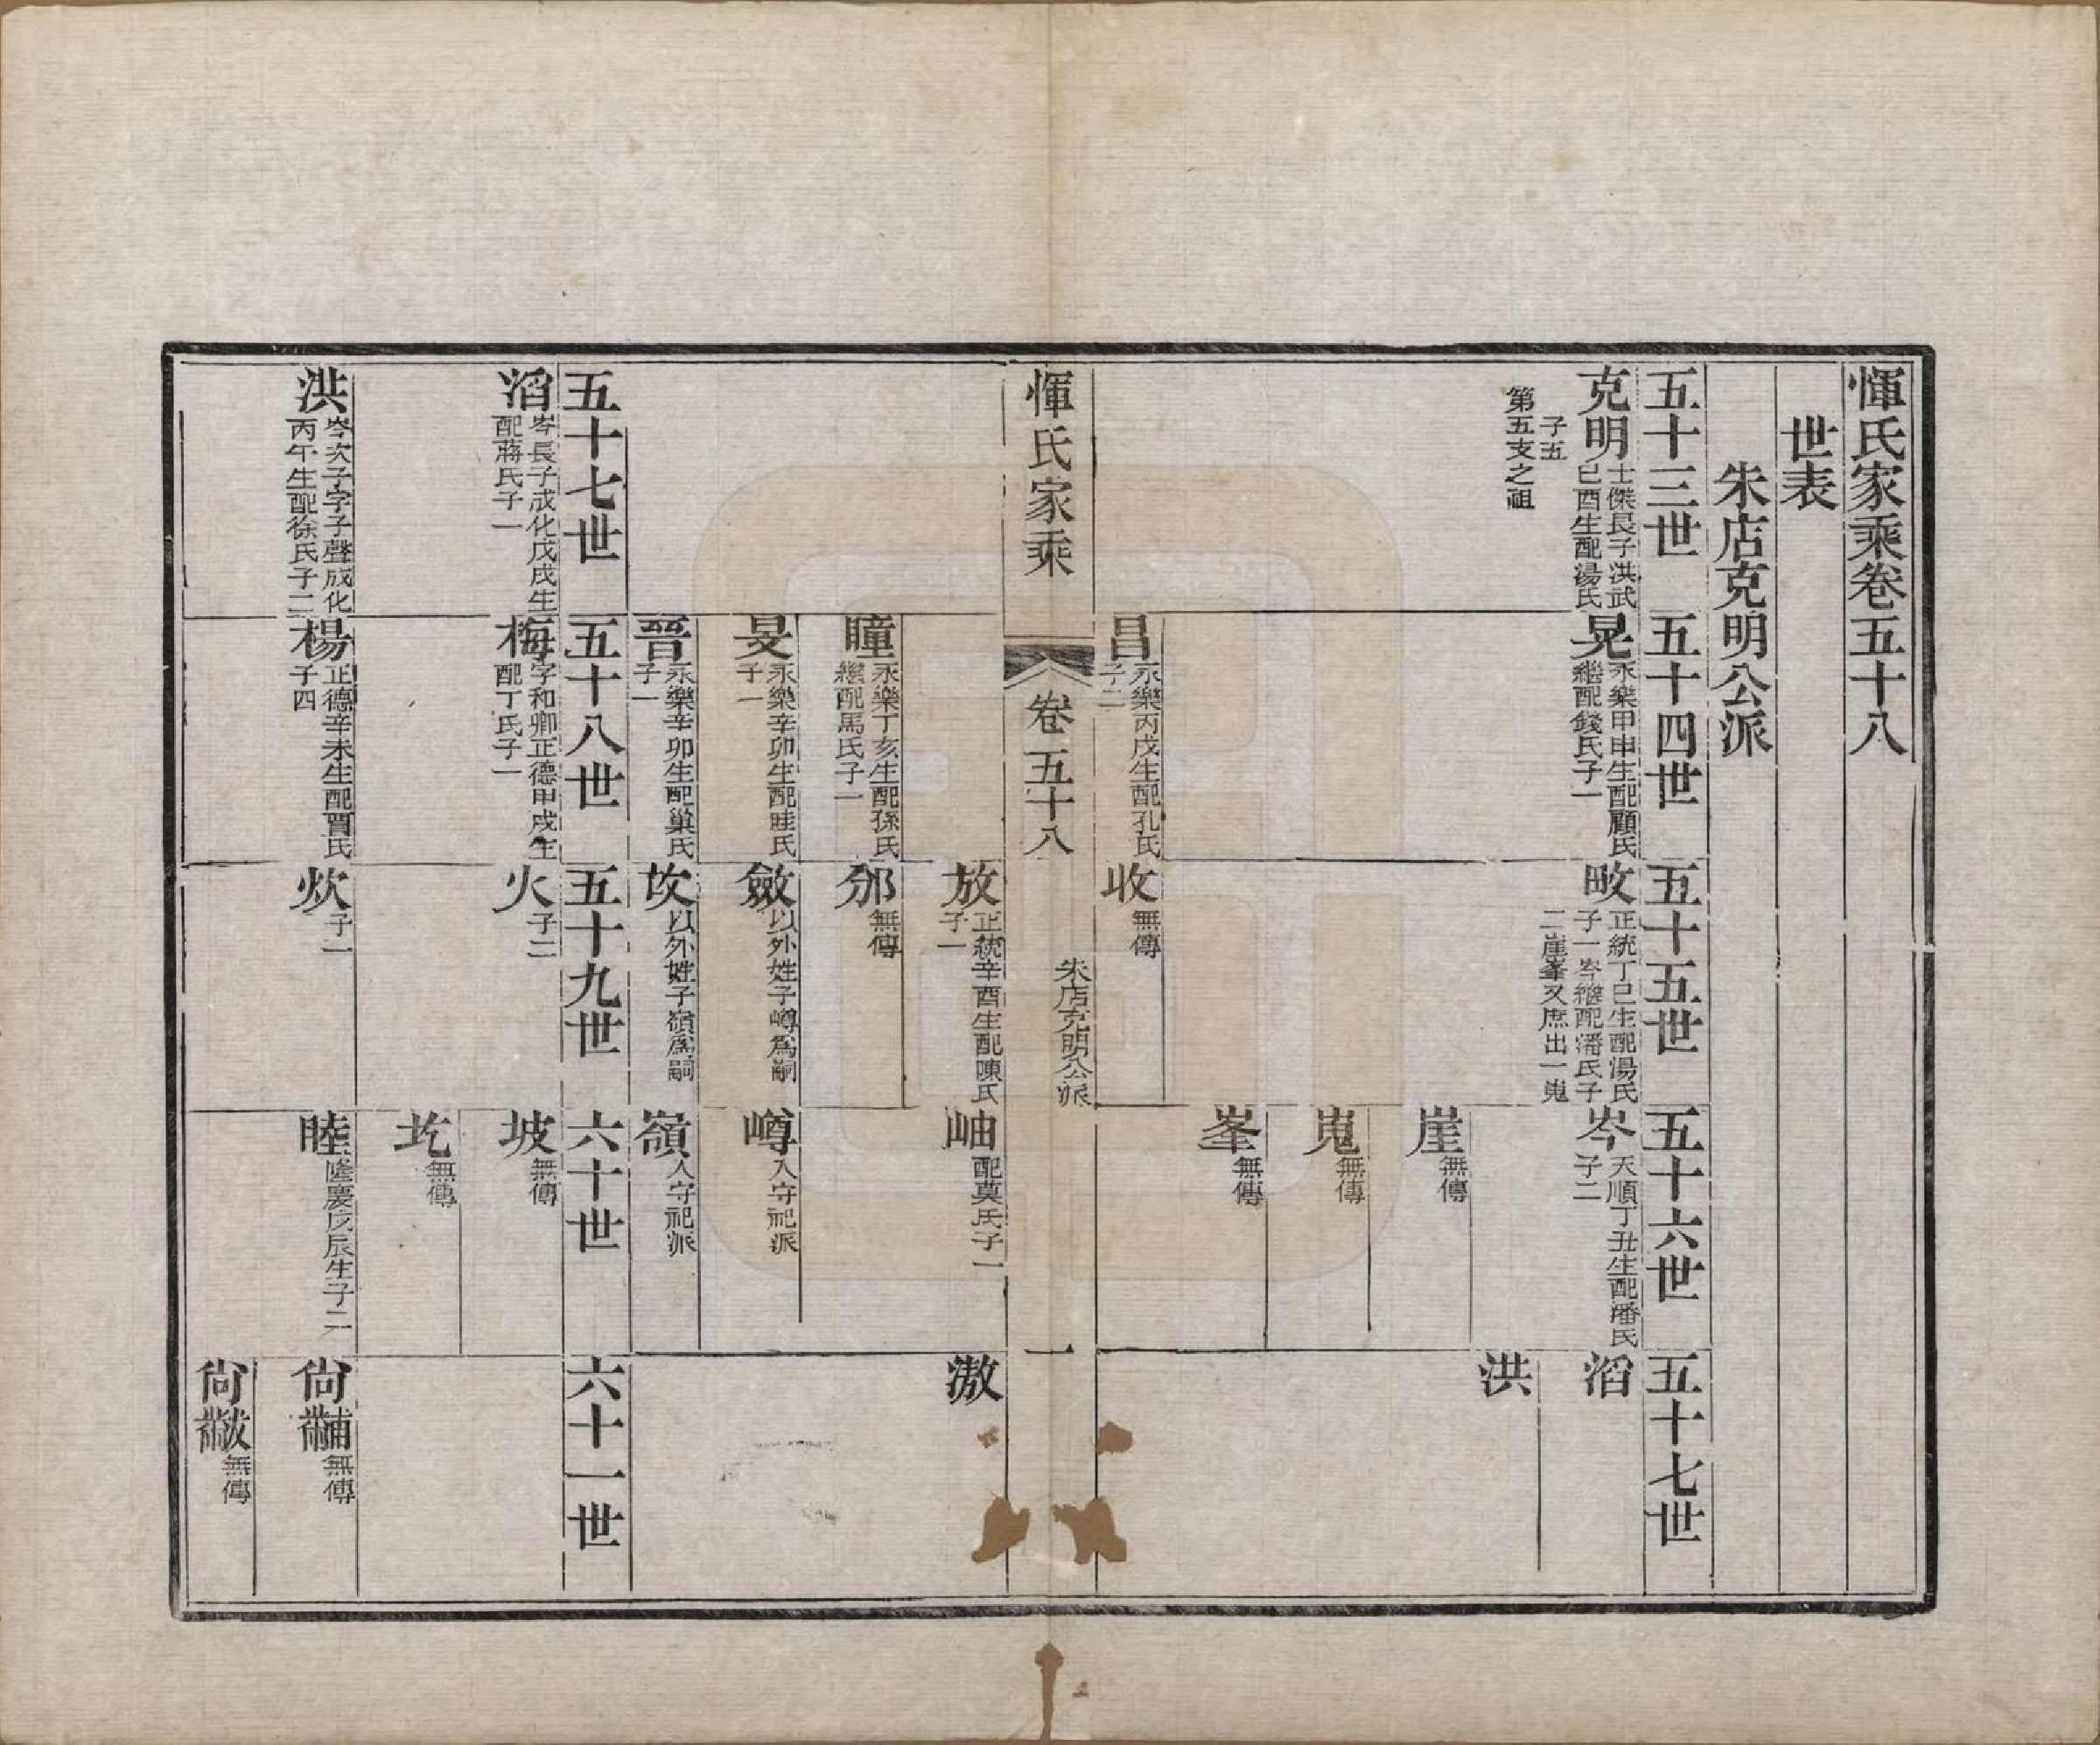 惲氏家乘卷五十八
世表
朱店克明公派
五十三世
五十四世
五十五世
五十六世
五十七世
克明
士傑長子洪武
己酉生配湯氏
子五
第五支之祖
晃
永樂甲申生配顧氏
繼配錢氏子一
畋
正統丁巳生配湯氏
子一岑繼配潘氏子
二崖峯又庶出一嵬
岑
天順丁丑生配潘氏
子二
滔
洪
崖
無傳
嵬
無傳
峯
無傳
昌
永樂丙戌生配孔氏
子二
收
無傳
惲氏家乘
卷五十八
朱店克明公派
一
放
正統辛酉生配陳氏
子一
岫
配莫氏子一
潡
瞳
永樂丁亥生配孫氏
繼配馬氏子一
邠
無傳
旻
永樂辛卯生配眭氏
子一
斂
以外姓子嶟為嗣
嶟
入守祀派
晉
永樂辛卯生配巢氏
子一
坎
以外姓子嶺為嗣
嶺
入守祀派
五十七世
五十八世
五十九世
六十世
六十一世
滔
岑長子成化戊戌生
配蔣氏子一
梅
字和卿正德甲戌生
配丁氏子一
火
子二
坡
無傳
圪
無傳
洪
岑次子字子聲成化
丙午生配徐氏子二
楊
正德辛未生配賈氏
子四
炊
子一
睦
隆慶戊辰生子二
尙黼
無傳
尙黻
無傳